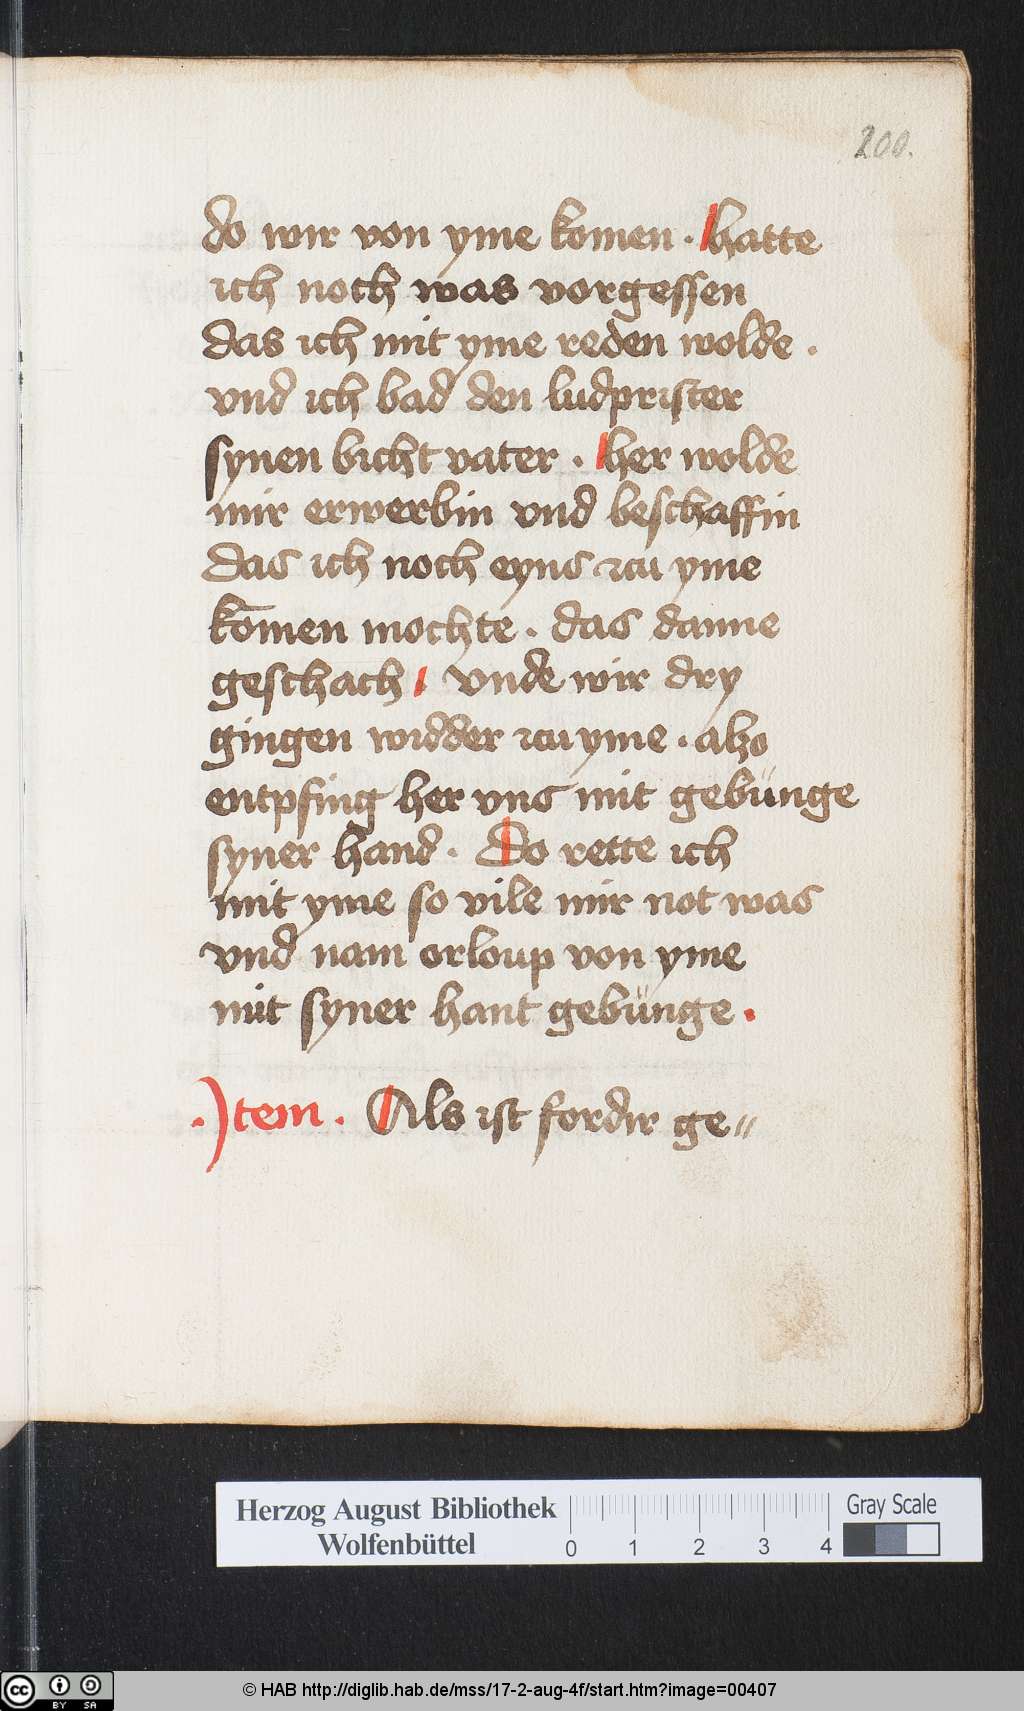 200.
do wir von yme komen . hatte
ich noch was vorgessen
das ich mit yme reden wolde .
vnd ich bad den ludprister
synen bicht vater . her wolde
mir erwerbin vnd beschaffin
das ich noch eyns zcu yme
komen mochte . das danne
geschach . vnde wir dry
gingen widder zcu yme . also
entpfing her vns mit gebünge
syner hand . Do rette ich
mit yme so vile mir not was
vnd nam orloup von yme
mit syner hant gebünge .
. Item . Als ist fordir ge〃
Herzog August Bibliothek
Wolfenbüttel
0 1 2 3 4
Gray Scale
cc BY SA
© HAB http://diglib.hab.de/mss/17-2-aug-4f/start.htm?image=00407